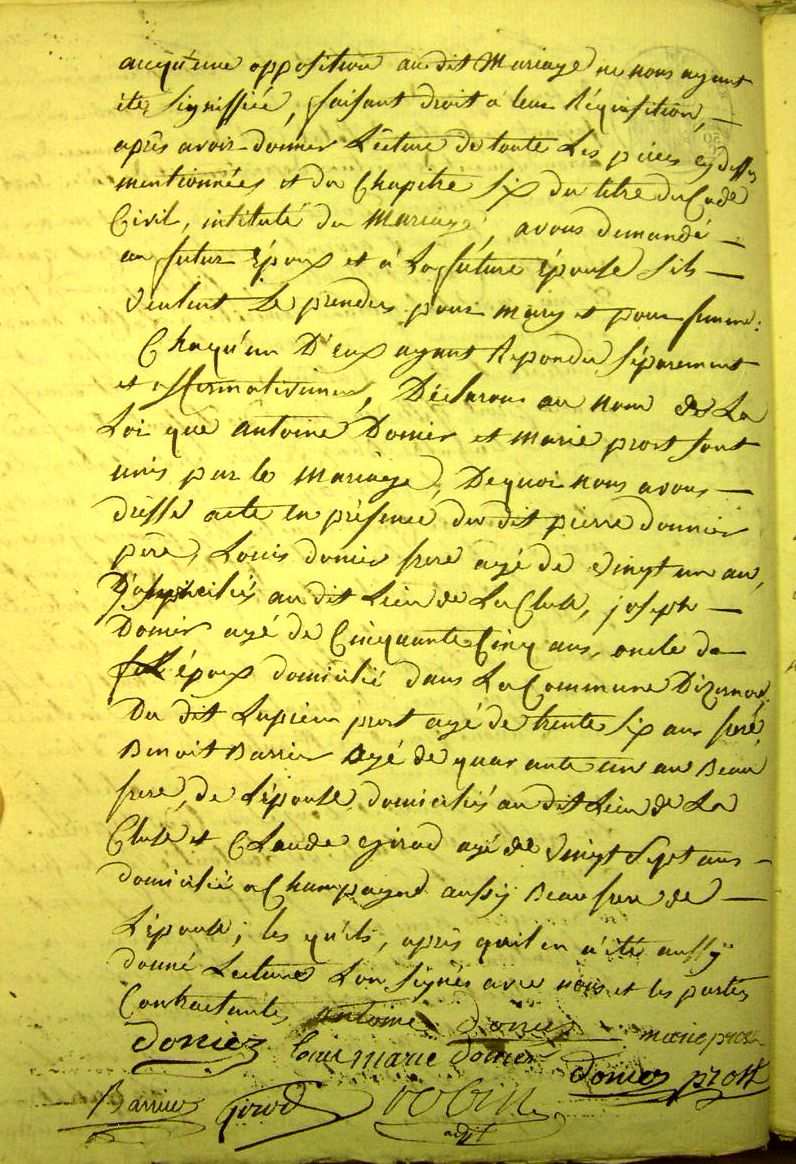 aucqu'une opposition audit Mariage ne nous ayant
été signiffiée, faisant droit a leur Réquisition,
après avoir donner Lecture de toute Les pièces cy dessus
mentionnées et du Chapitre six du titre du Code
Civil, intitulé du Mariage, avons demandé
au futur Époux et à La future Épouse s'ils
veulent se prendre pour mary et pour femme:
Chaqu'un D'eux ayant Répondu séparément
et affirmativement, Déclarons au nom de La
Loi que antoine Domier et marie prost sont
unis par le mariage, Dequoi nous avons
dressé acte en présence du dit pierre domier
père, Louis domier frere agé de vingt un an,
Domiciliés au dit Lieu de La Cluse, joseph
Domier agé de Cinquante Cinq ans, oncle de
époux domicilié dans La Commune D'izernore,
Du dit Lupicin prost agé de trente six ans frere,
Benoit Barrier agé de quarante un an Beau
frere, de L'épouse domiciliés au dit Lieu de La
Cluse et Claude girod agé de vingt sept ans
domicilié a Champagne aussy Beau frere de
L'épouse; les qu'els, après qu'il en a été aussy
donné Lecture L'on signés avec nous et les parties
Contractantes antoine domier marie prost
domier Louis marie domier domier prost
Barrier girod
adjt